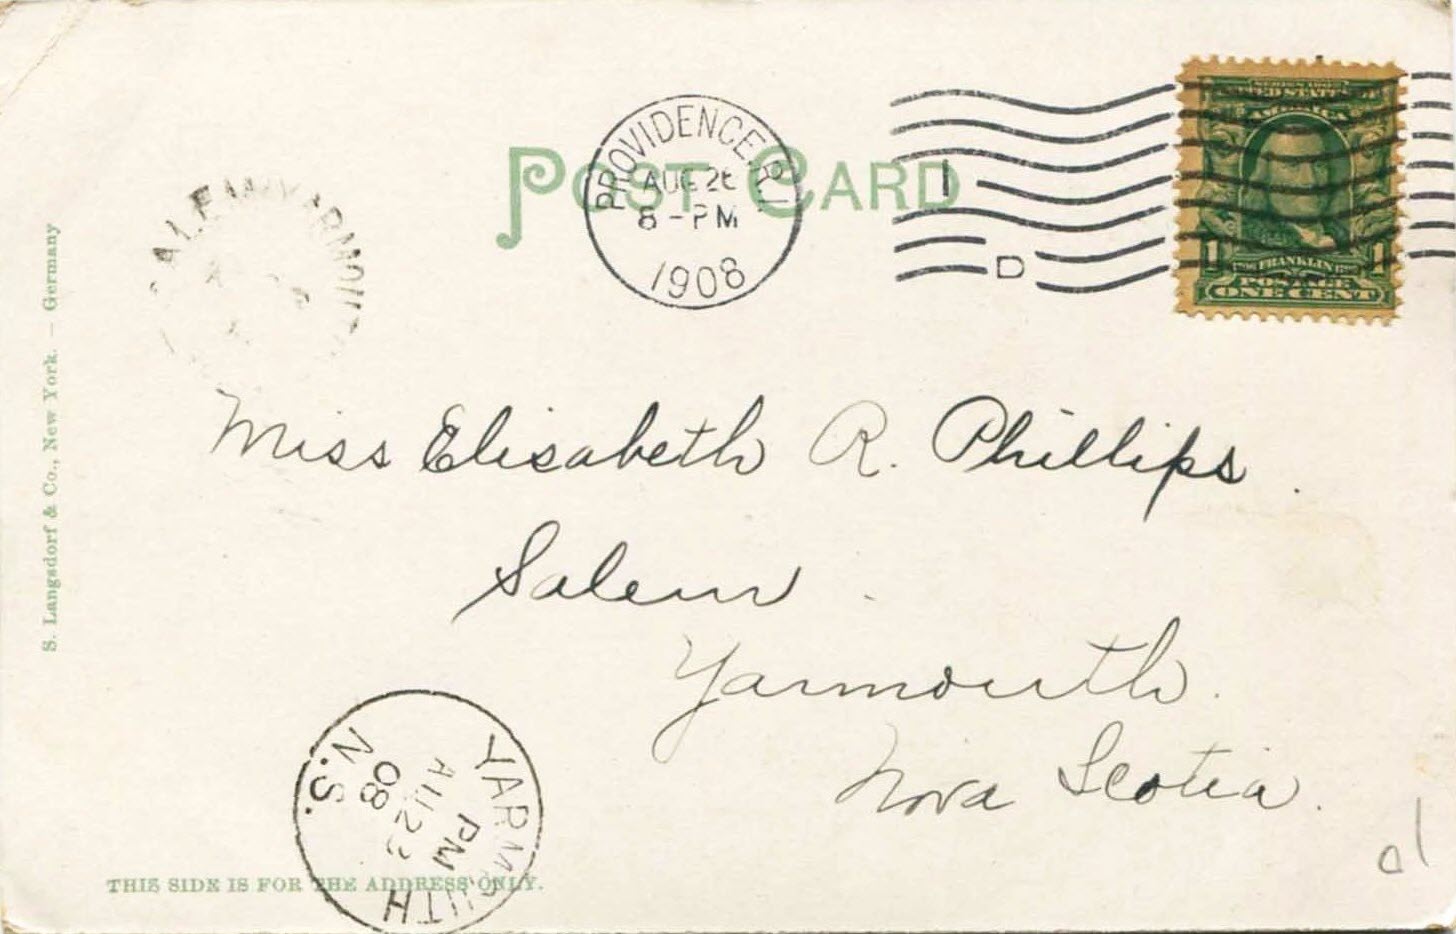 POST CARD
PROVIDENCE, R.I.
AUG 26
8 - PM
1908
1
D
SERIES 1902
UNITED STATES OF
AMERICA
1 FRANKLIN 1
POSTAGE
ONE CENT
S. Langsdorf & Co., New York. — Germany
Miss Elisabeth R. Phillips
Salem
Yarmouth.
Nova Scotia.
YARMOUTH
PM
AU
08
N.S.
THIS SIDE IS FOR THE ADDRESS ONLY.